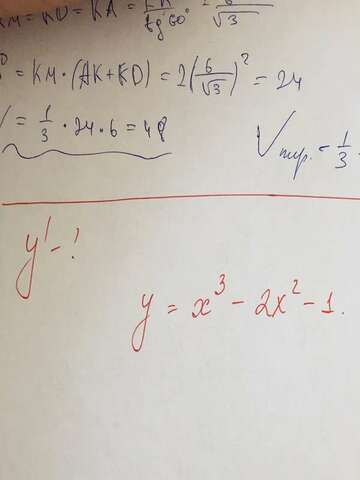 KM = KD = KA = EK/tg 60° = 6/√3
= KM · (AK + KD) = 2(6/√3)² = 24
V = 1/3 · 24 · 6 = 48
Vпир. = 1/3
y' - ?
y = x³ - 2x² - 1.